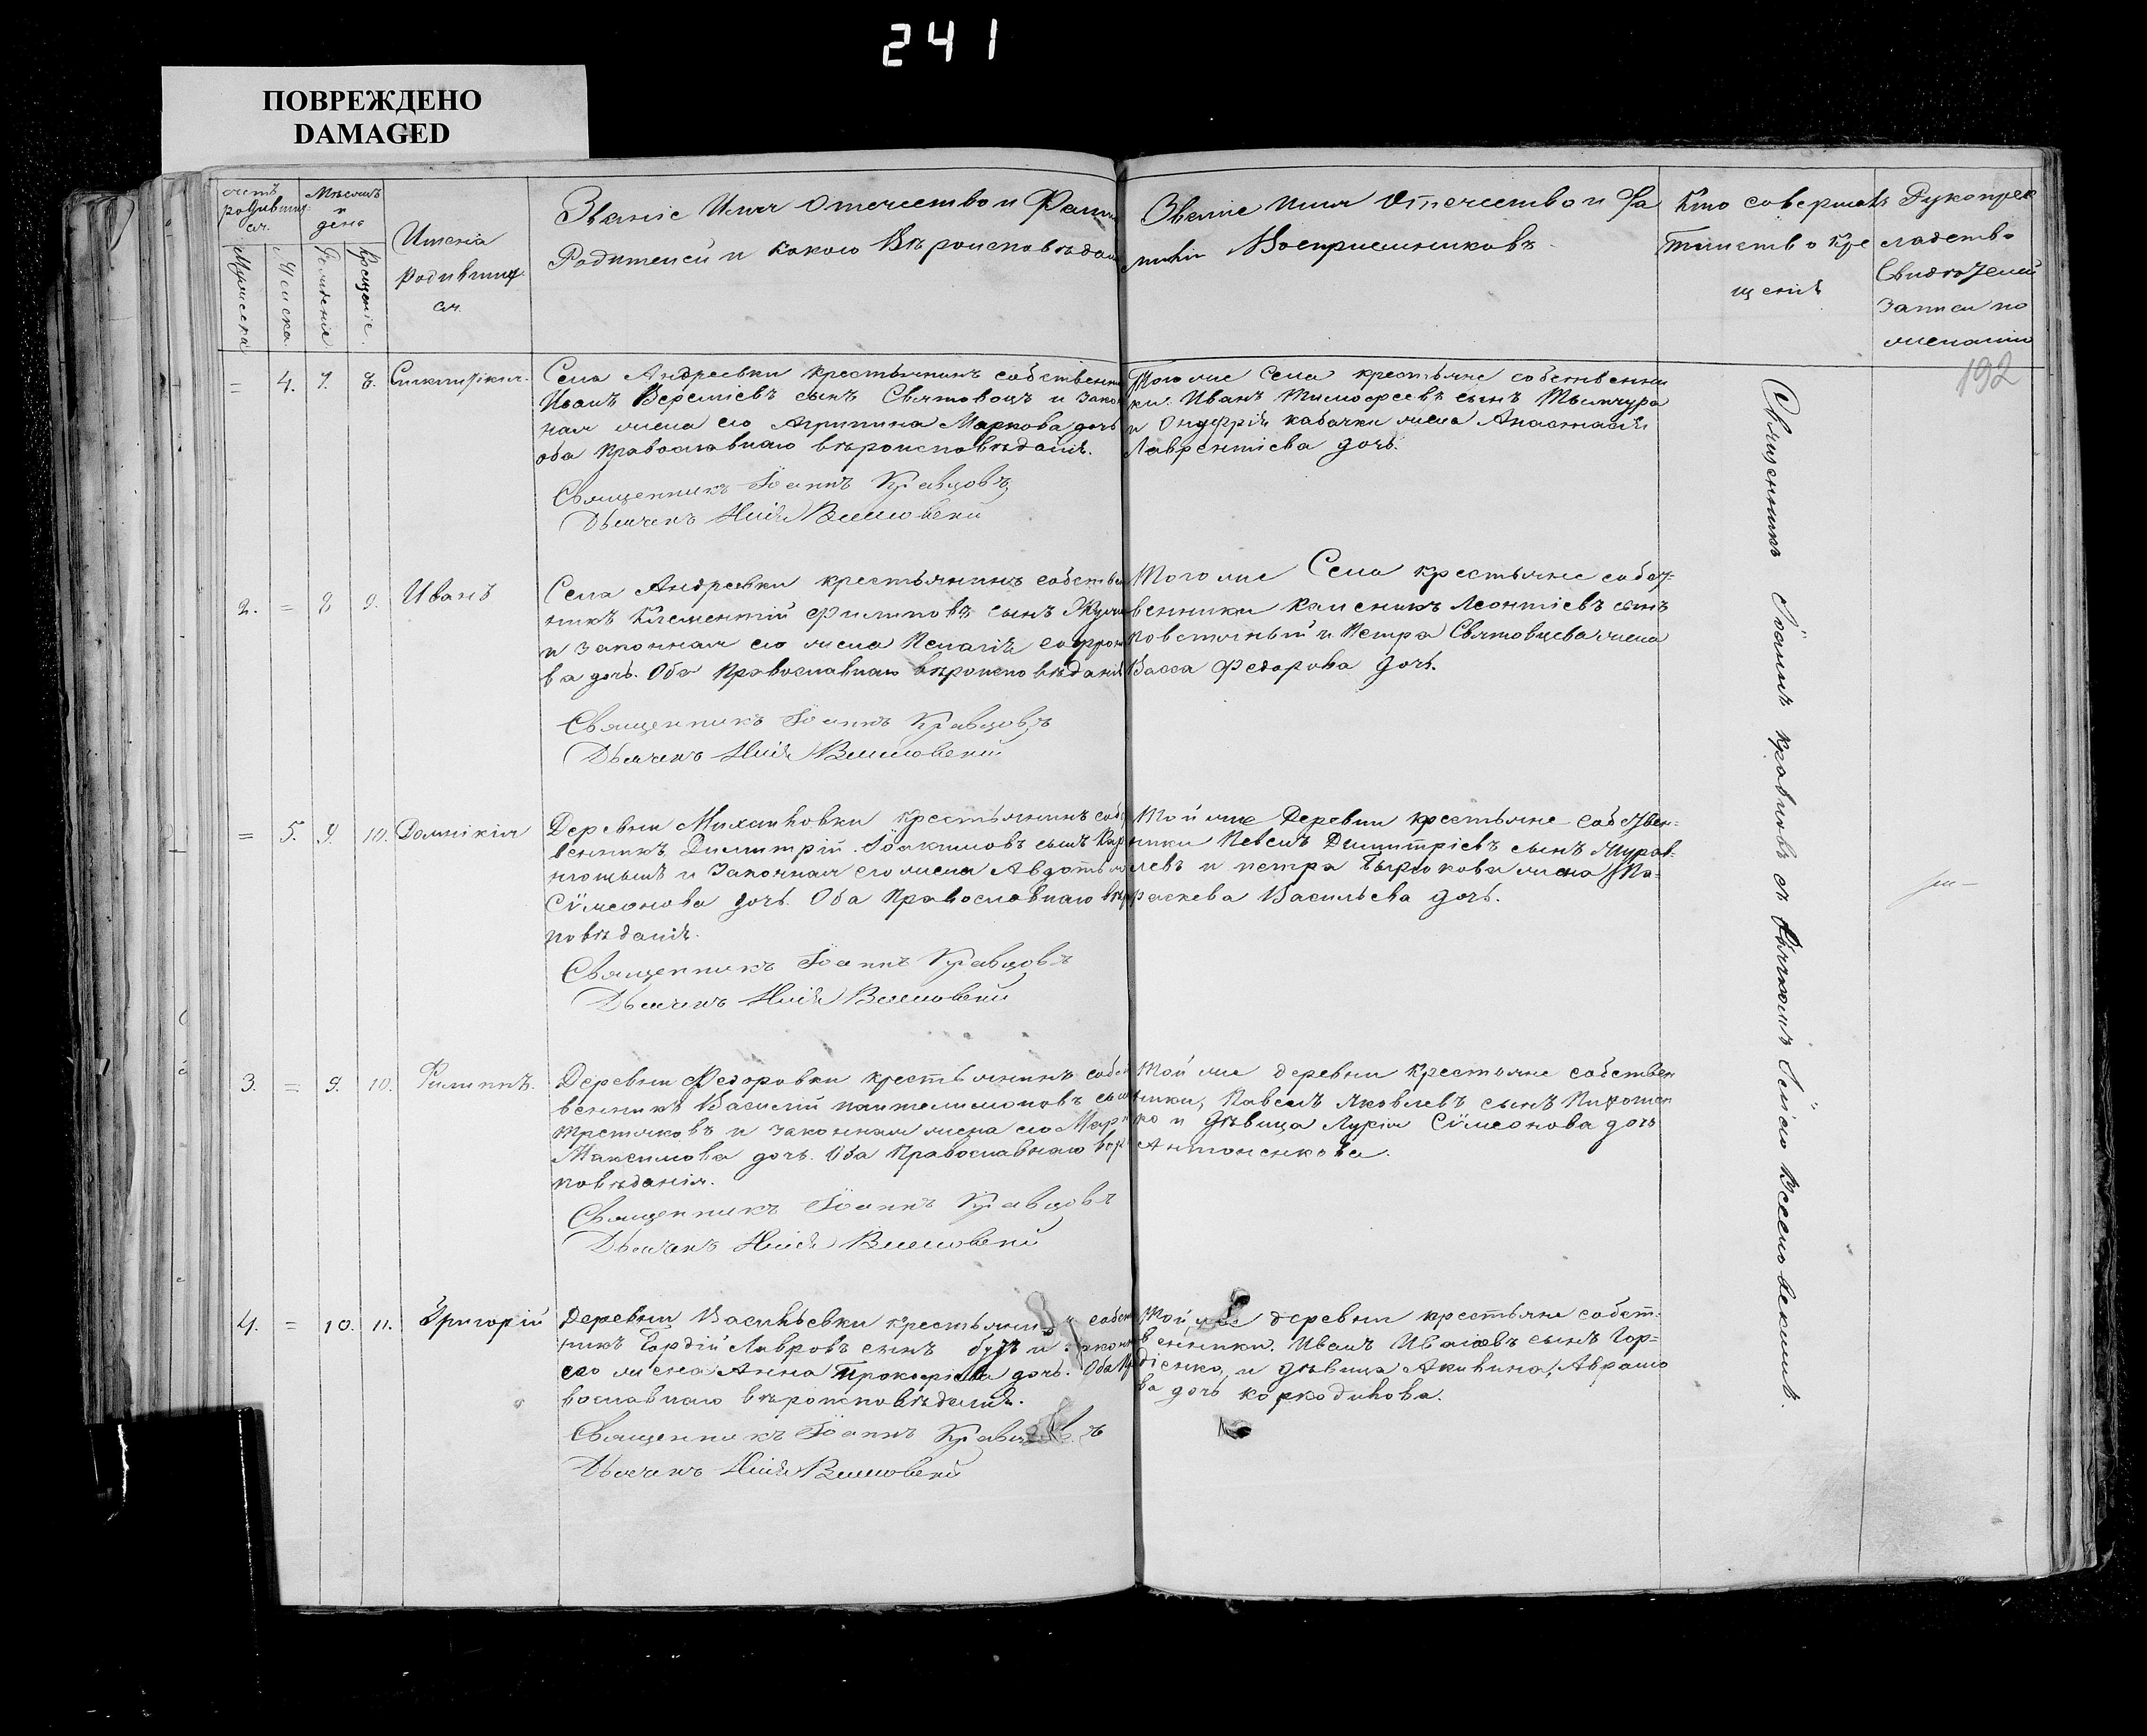 241
ПОВРЕЖДЕНО
DAMAGED
192
счетъ родившихся.
Мѣсяцъ и день
Имена родивших ся.
Званіе Имя Отечество и Фами
Родителей и какого Вѣроисповѣдан
Званіе Имя Отечество и Фа
миліи Воспріемниковъ
Кто совершалъ
таинство Кре
щенія
Рукоприк
ладство
Свидѣтелей
записи по
желанію
Мужеска
Женска
Рожденія
Крещеніе.
= 4. 7. 8.
Села Андреевки крестьянинъ собственни
Иванъ Веремiевъ сынъ Святовецъ и закон
ная жена его Агрипина Маркова дочь
оба православнаго вѣроисповѣданія.
Священникъ Іоаннъ Кравцовъ
Дьячекъ
Тогоже Села крестьяне собственни
ки: Иванъ Тимофеевъ сынъ
и Онуфрія кабачки жена Анастасія
Лаврентіева дочь.
2. = 8 9. Иванъ
Села Андреевки крестьянинъ собствен
никъ Климентій Филиповъ сынъ
и законная его жена Пелагія Софроно
ва дочь. Оба Православнаго вѣроисповѣданія
Священникъ Іоаннъ Кравцовъ
Дьячекъ
Тогоже Села крестьяне собст=
венники Каленикъ Леонтіевъ сынъ
и Петра Святовцева жена
Васса Федорова дочь.
= 5. 9. 10. Домникія
Деревни Михайловки крестьянинъ собс
венникъ, Димитрій Іоакимовъ сынъ
и Законная его жена Авдотья
Сѵмеонова дочь. Оба Православнаго вѣр
повѣданія.
Священникъ Іоаннъ Кравцовъ
Дьячекъ
Той же Деревни крестьяне собствен=
ники Павелъ Димитріевъ сынъ Журав=
левъ и петра Бирюкова жена Па=
раскева Васильева дочь.
3. = 9. 10. Филиппъ.
Деревни Федоровки крестьянинъ собст
венникъ Василій пантелимоновъ сын
Третяковъ и законная жена его Мар
Максимова дочь. Оба Православнаго вѣр
повѣданія.
Священникъ Іоаннъ Кравцовъ
Дьячекъ
Той же деревни Крестьяне собствен
ники, Павелъ Яковлевъ сынъ
ко и дѣвица Лукія Сѵмеонова дочь
Антоненкова.
4. = 10. 11. Григорій
Деревни Васильевки крестьянинъ собств
никъ Гордій Лавровъ сынъ и законна
его жена Анна Прокофіева дочь. Оба Пр
вославнаго вѣроисповѣданія.
Священникъ Іоаннъ Кравцовъ
Дьячекъ
Той же деревни крестьяне собст=
венники. Иванъ Ивановъ сынъ Гор=
діенко, и дѣвица Акилина, Аврамо
ва дочь
Священникъ Іоаннъ Кравцовъ съ дьячкомъ